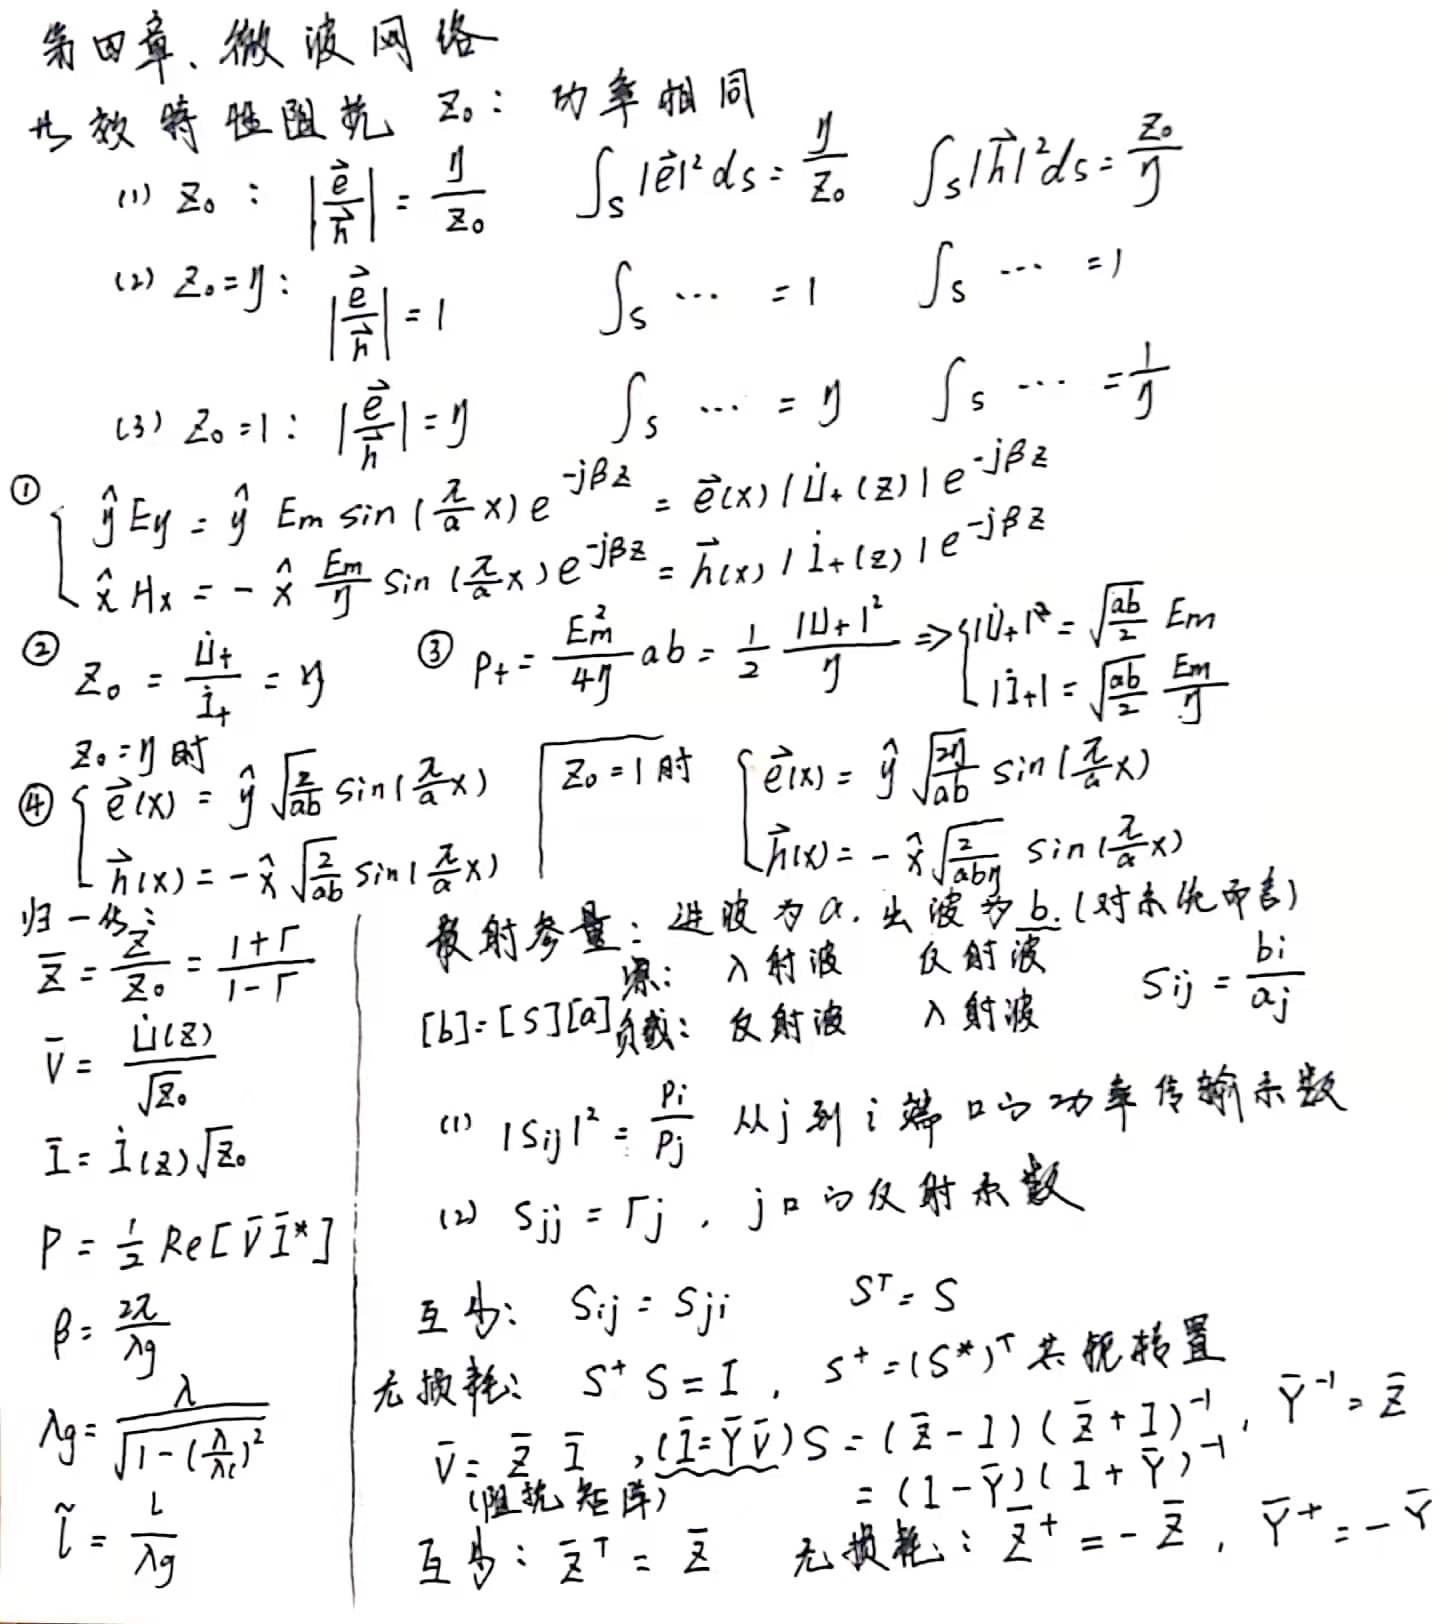 第四章、微波网络
等效特性阻抗 Z₀: 功率相同
(1) Z₀: |e⃗/h⃗| = η/Z₀ ∫ₛ|e⃗|²ds = η/Z₀ ∫ₛ|h⃗|²ds = Z₀/η
(2) Z₀=η: |e⃗/h⃗| = 1 ∫ₛ ⋯ = 1 ∫ₛ ⋯ = 1
(3) Z₀=1: |e⃗/h⃗| = η ∫ₛ ⋯ = η ∫ₛ ⋯ = 1/η
① { ŷEy = ŷ Em sin(π/a x) e^{-jβz} = e⃗(x)|U̇₊(z)|e^{-jβz}
x̂Hx = -x̂ Em/η sin(π/a x) e^{-jβz} = h⃗(x)|İ₊(z)|e^{-jβz}
② Z₀ = U̇₊/İ₊ = η
③ P₊ = Em²/4η ab = 1/2 |U₊|²/η ⇒ { |U̇₊| = √(ab/2) Em
|İ₊| = √(ab/2) Em/η
Z₀=η时
④ { e⃗(x) = ŷ √(2/ab) sin(π/a x)
h⃗(x) = -x̂ √(2/ab) sin(π/a x)
Z₀=1时 { e⃗(x) = ŷ √(2η/ab) sin(π/a x)
h⃗(x) = -x̂ √(2/abη) sin(π/a x)
归一化:
Z̄ = Z/Z₀ = (1+Γ)/(1-Γ)
V̄ = U̇(z)/√Z₀
Ī = İ(z)√Z₀
P = 1/2 Re[V̄Ī*]
β = 2π/λg
λg = λ/√(1-(λ/λc)²)
l̃ = L/λg
散射参量: 进波为a. 出波为b. (对系统而言)
源: 入射波 反射波
[b]=[S][a] 负载: 反射波 入射波
Sij = bi/aj
(1) |Sij|² = Pi/Pj 从j到i端口的功率传输系数
(2) Sjj = Γj, j口的反射系数
互易: Sij = Sji Sᵀ = S
无损耗: S⁺S = I, S⁺ = (S*)ᵀ 共轭转置
V̄ = Z̄ Ī, (Ī=ȲV̄) S = (Z̄-I)(Z̄+I)⁻¹, Ȳ⁻¹ = Z̄
(阻抗矩阵) = (I-Ȳ)(I+Ȳ)⁻¹
互易: Z̄ᵀ = Z̄ 无损耗: Z̄⁺ = -Z̄, Ȳ⁺ = -Ȳ